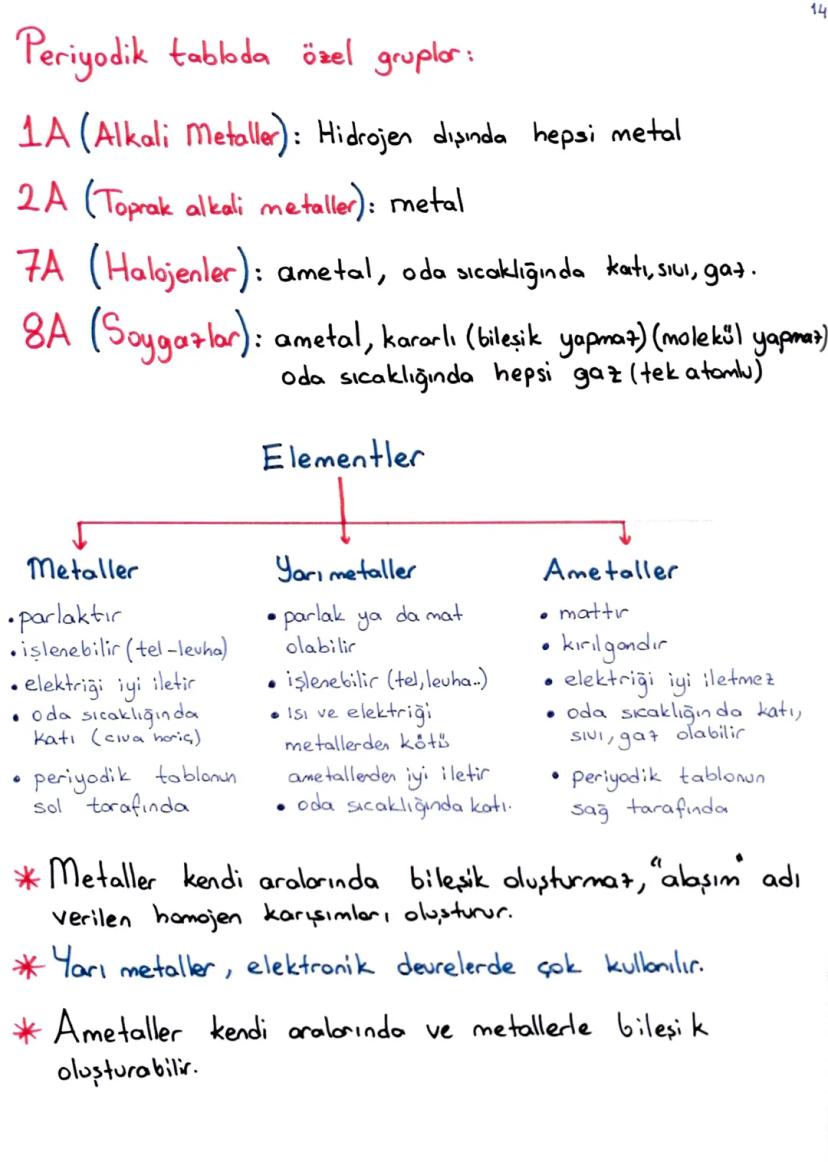 14
Periyodik tabloda özel gruplar:
1A (Alkali Metaller): Hidrojen dışında hepsi metal
2A (Toprak alkali metaller): metal
7A (Halojenler): ametal, oda sıcaklığında katı, sıvı, gaz.
8A (Soygazlar): ametal, kararlı (bileşik yapmaz) (molekül yapmaz)
oda sıcaklığında hepsi gaz (tek atomlu)
Elementler
Metaller
• parlaktır
• işlenebilir (tel-levha)
• elektriği iyi iletir
• oda sıcaklığında
katı (cıva hariç)
• periyodik tablonun
sol tarafında
Yarı metaller
• parlak ya da mat
olabilir
• işlenebilir (tel, levha..)
• ısı ve elektriği
metallerden kötü
ametallerden iyi iletir
• oda sıcaklığında katı.
Ametaller
• mattır
• kırılgandır
• elektriği iyi iletmez
• oda sıcaklığında katı,
sıvı, gaz olabilir
• periyodik tablonun
sağ tarafında
* Metaller kendi aralarında bileşik oluşturmaz, "alaşım" adı
verilen homojen karışımları oluşturur.
* Yarı metaller, elektronik devrelerde çok kullanılır.
* Ametaller kendi aralarında ve metallerle bileşik
oluşturabilir.